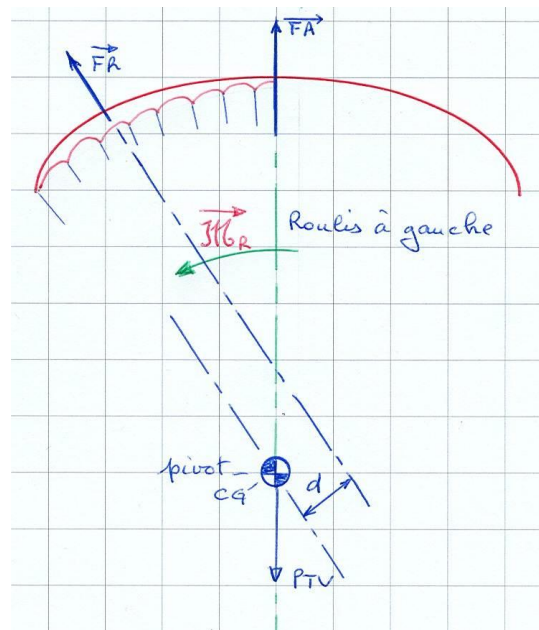 FA
FR
Roulis à gauche
𝔐R
pivot
CG
d
PTV